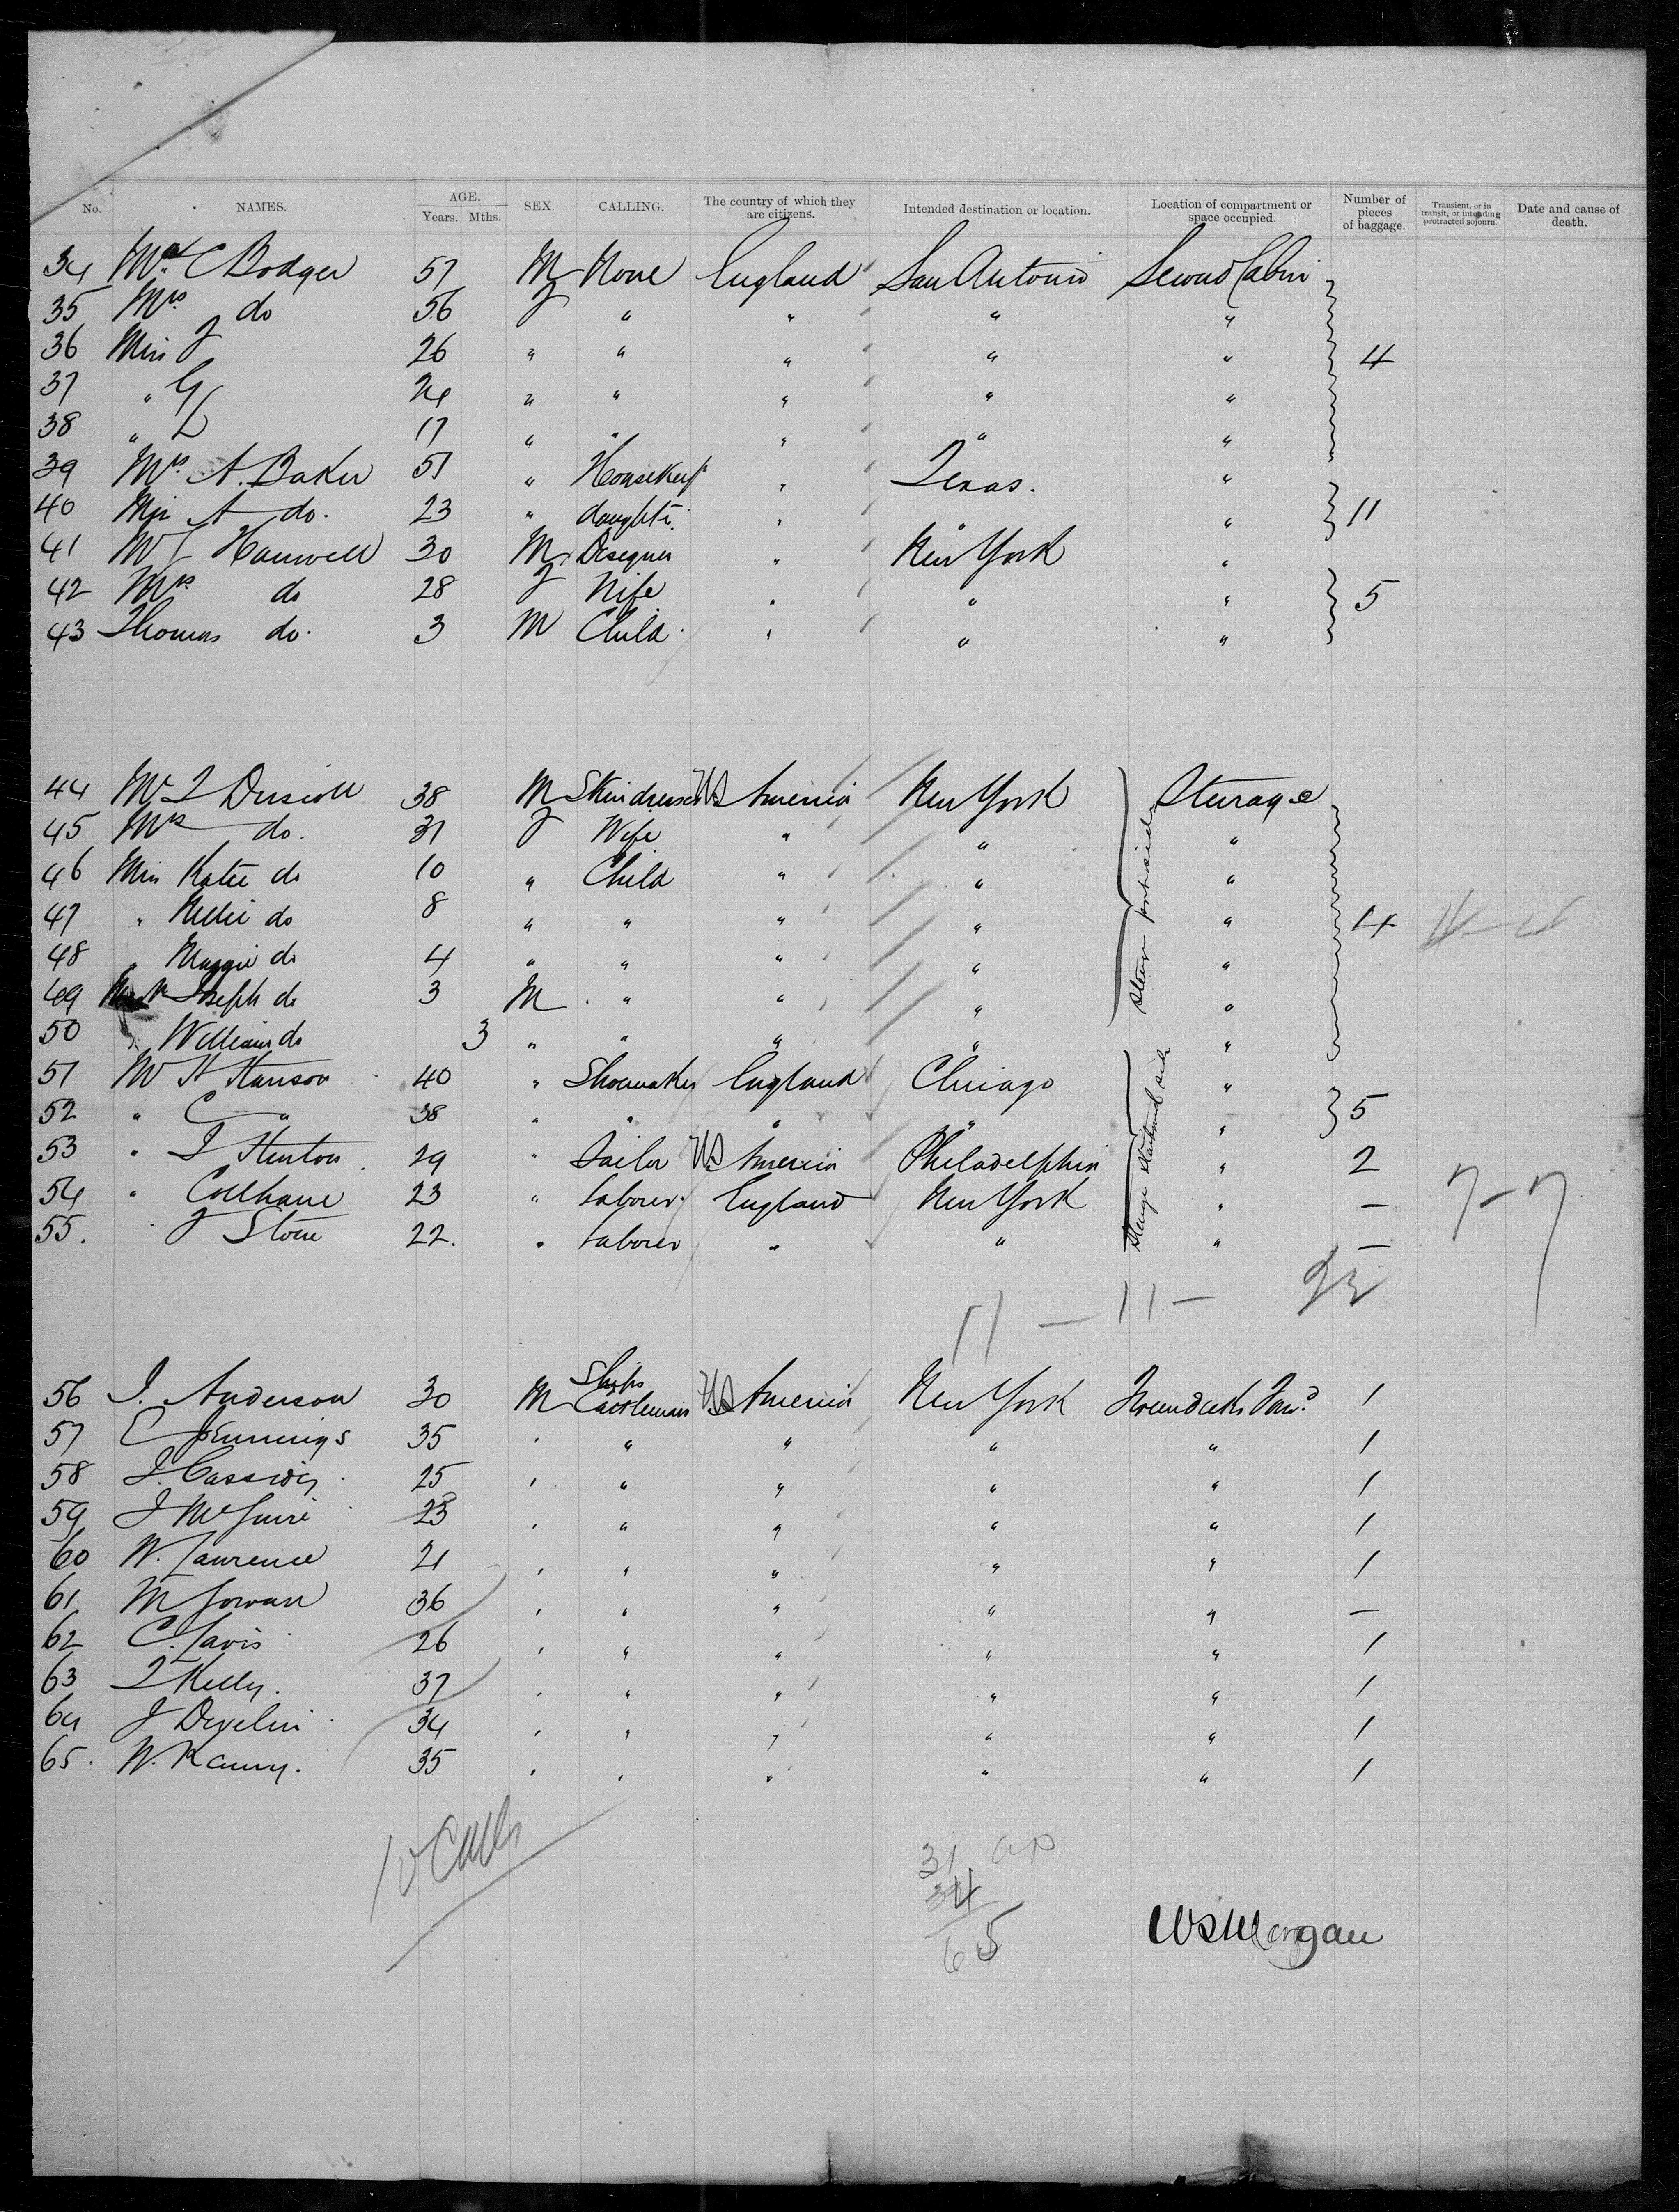 No. NAMES. AGE. Years. Mths. SEX. CALLING. The country of which they are citizens. Intended destination or location. Location of compartment or space occupied. Number of pieces of baggage. Transient, or in transit, or intending protracted sojourn. Date and cause of death.
34 Mr C Bodger 57 M None England San Antonio Second Cabin
35 Mrs do 56 F " " " "
36 Miss F 26 " " " " " 4
37 " G 24 " " " " "
38 " L 17 " " " " "
39 Mrs A. Baker 51 " Housekeepr " Texas. "
40 Miss A do. 23 " daughter " " " 11
41 Mr J Hanwell 30 M Desegner " New York "
42 Mrs do 28 F Wife " " " 5
43 Thomas do. 3 M Child " " "
44 Mr T Driscoll 38 M Skindresser US America New York Steerage
45 Mrs do. 31 F Wife " " "
46 Miss Katie do 10 " Child " " "
47 " Nellie do 8 " " " " " 4
48 " Maggie do 4 " " " " "
49 Joseph do 3 M " " " "
50 " William do 3 " " " " "
Steer port side
51 Mr H Hanson 40 " Shoemaker England Chicago "
52 " C " 38 " " " " " 5
53 " T Hinton 29 " Sailor US America Philadelphia " 2
54 " Collhane 23 " Laborer England New York " —
55. " J Stone 22. " Laborer " " " —
Steerge Starboard side
7 - 7
11 — 11 — 22
56 J. Anderson 30 M Ships Cattleman US America New York 1
57 C Jennings 35 " " " " " 1
58 J. Cassidy 25 " " " " " 1
59 J McGuire 23 " " " " " 1
60 W. Lawrence 21 " " " " " 1
61 M Gowan 36 " " " " " —
62 C. Lavis 26 " " " " " 1
63 T Kelly. 37 " " " " " 1
64 J Develin 34 " " " " " 1
65. W. 35 " " " " " 1
10 Catt
31
34
65
WS Morgan